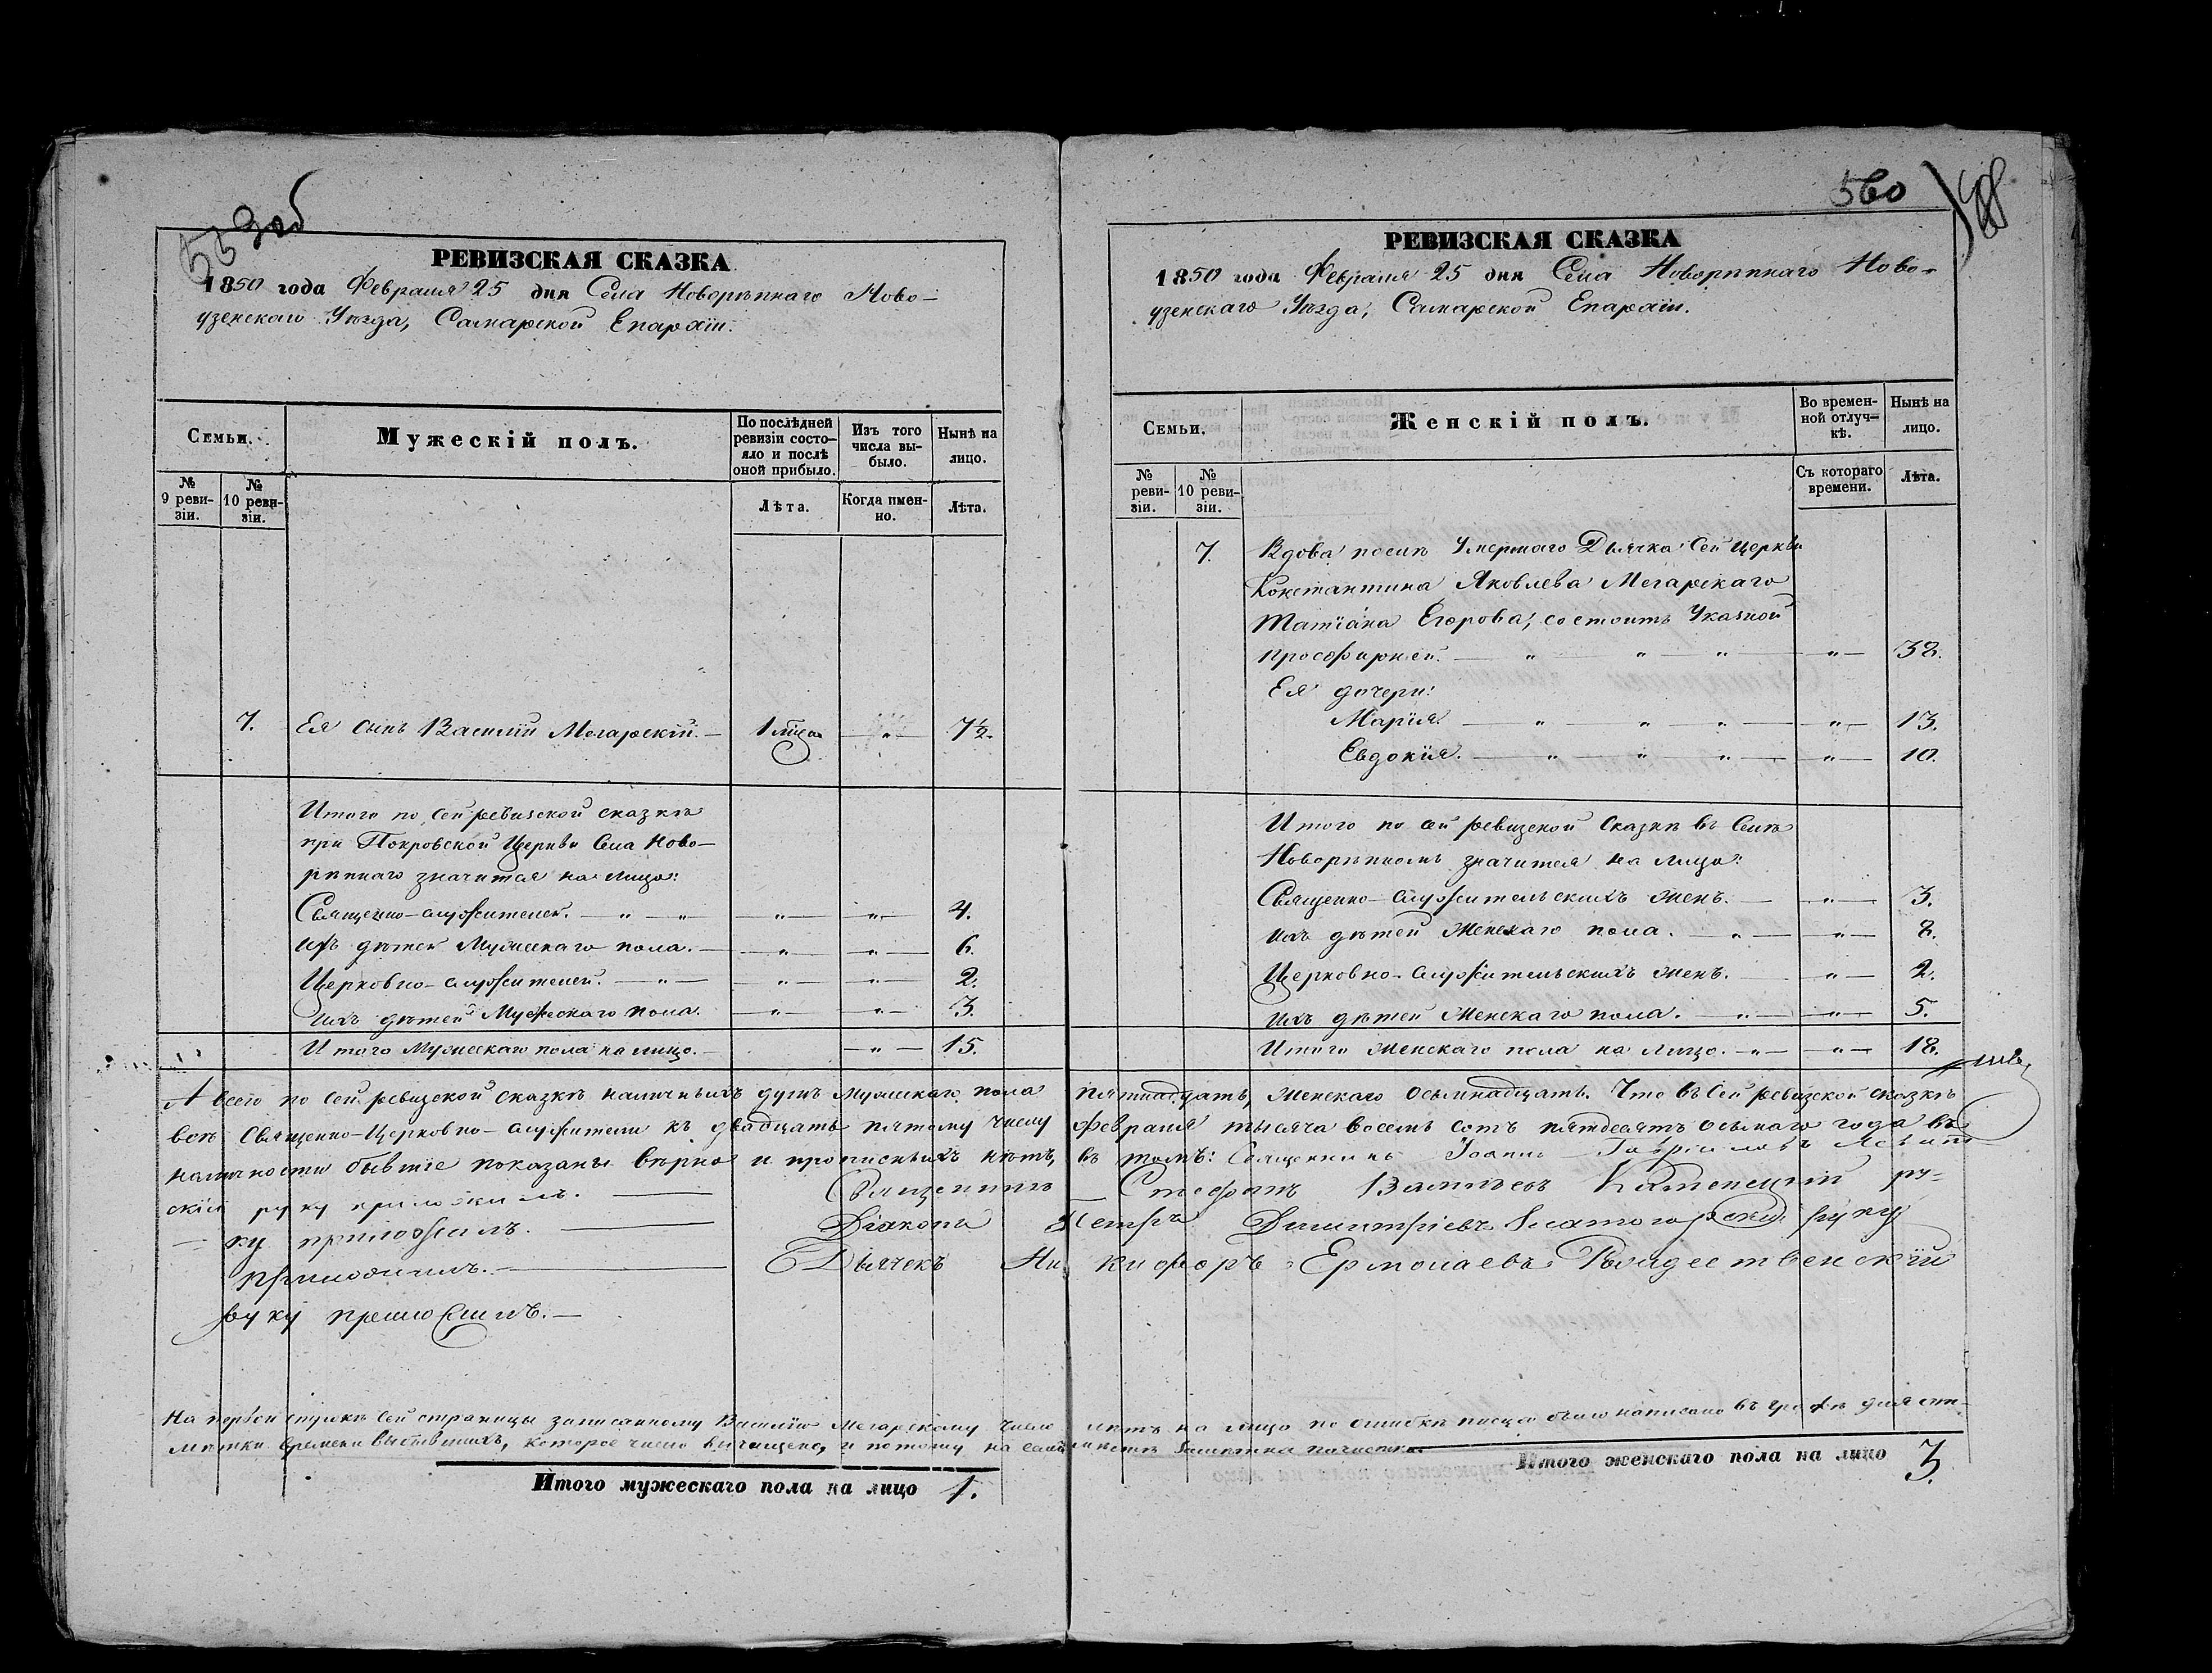 560
РЕВИЗСКАЯ СКАЗКА
1850 года Февраля 25 дня Села Новорѣпнаго Ново-
узенскаго Уѣзда, Самарской Епархіи.
Семьи.
Мужескій полъ.
По послѣдней ревизіи состо-яло и послѣ оной прибыло.
Изъ того числа вы-было.
Нынѣ на лицо.
№ 9 реви-зіи.
№ 10 реви-зіи.
Лѣта.
Когда имен-но.
Лѣта.
7. Ея сынъ Василій Мегарскій. — „ — 7½.
Итого по сей ревизской сказкѣ
при Покровской Церкви Села Ново-
рѣпнаго значится на лицо:
Священно-служителей. — „ — „ — „ — „ — 4.
ихъ дѣтей Мужескаго пола. — „ — „ — 6.
Церковно-служителей. — „ — „ — „ — 2.
ихъ дѣтей Мужескаго пола. — „ — „ — 3.
Итого Мужескаго пола на лицо. — „ — 15.
РЕВИЗСКАЯ СКАЗКА
1850 года Февраля 25 дня Села Новорѣпнаго Ново-
узенскаго Уѣзда, Самарской Епархіи.
Семьи.
Женскій полъ.
Во времен-ной отлуч-кѣ.
Нынѣ на лицо.
№ реви-зіи.
№ 10 реви-зіи.
Съ котораго времени.
Лѣта.
7. Вдова послѣ Умершаго Дьячка Сей Церкви
Константина Яковлева Мегарскаго
Татіана Егорова, состоитъ Указной
просфирней. — „ — „ — „ — „ — 38.
Ея дочери:
Марія — „ — „ — „ — „ — 13.
Евдокія. — „ — „ — „ — „ — 10.
Итого по сей ревизской Сказкѣ въ Селѣ
Новорѣпномъ значится на лицо:
Священно-служительскихъ женъ. — „ — 3.
ихъ дѣтей Женскаго пола. — „ — „ — 8.
Церковно-служительскихъ женъ. — „ — 2.
ихъ дѣтей Женскаго пола. — „ — „ — 5.
Итого Женскаго пола на лицо. — „ — „ — 18.
А всего по сей ревизской сказкѣ наличныхъ душъ Мужескаго пола пятнадцать, Женскаго Осьмнадцать. Что въ сей ревизской сказкѣ
всѣ Священно-Церковно-служители къ двадцать пятому числу Февраля тысяча восемь сотъ пятдесятъ осьмаго года въ
наличности бывшіе показаны вѣрно и прописныхъ нѣтъ, въ томъ: Священникъ Іоаннъ Гавріиловъ
скій руку приложилъ. — Священникъ Стефанъ Каменецкій ру-
ку приложилъ. — Діаконъ Петръ Димитріевъ Златогорскій руку
приложилъ. — Дьячекъ Никифоръ Ермолаевъ Рождественскій
руку приложилъ. —
На первой строкѣ сей страницы записанному Василію Мегарскому число лѣтъ на лицо по ошибкѣ писца было написано въ графѣ для от-
мѣтки времени выбывшихъ, которое число вычищено, и потому на семъ мѣстѣ
Итого мужескаго пола на лицо 1.
Итого женскаго пола на лицо 3.